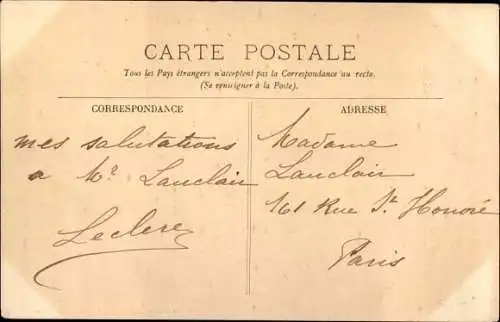 CARTE POSTALE
Tous les Pays étrangers n'acceptent pas la Correspondance au recto.
(Se renseigner à la Poste).
CORRESPONDANCE
mes salutations
a Mr Lanclair
Leclerc
ADRESSE
Madame
Lanclair
161 Rue St Honoré
Paris